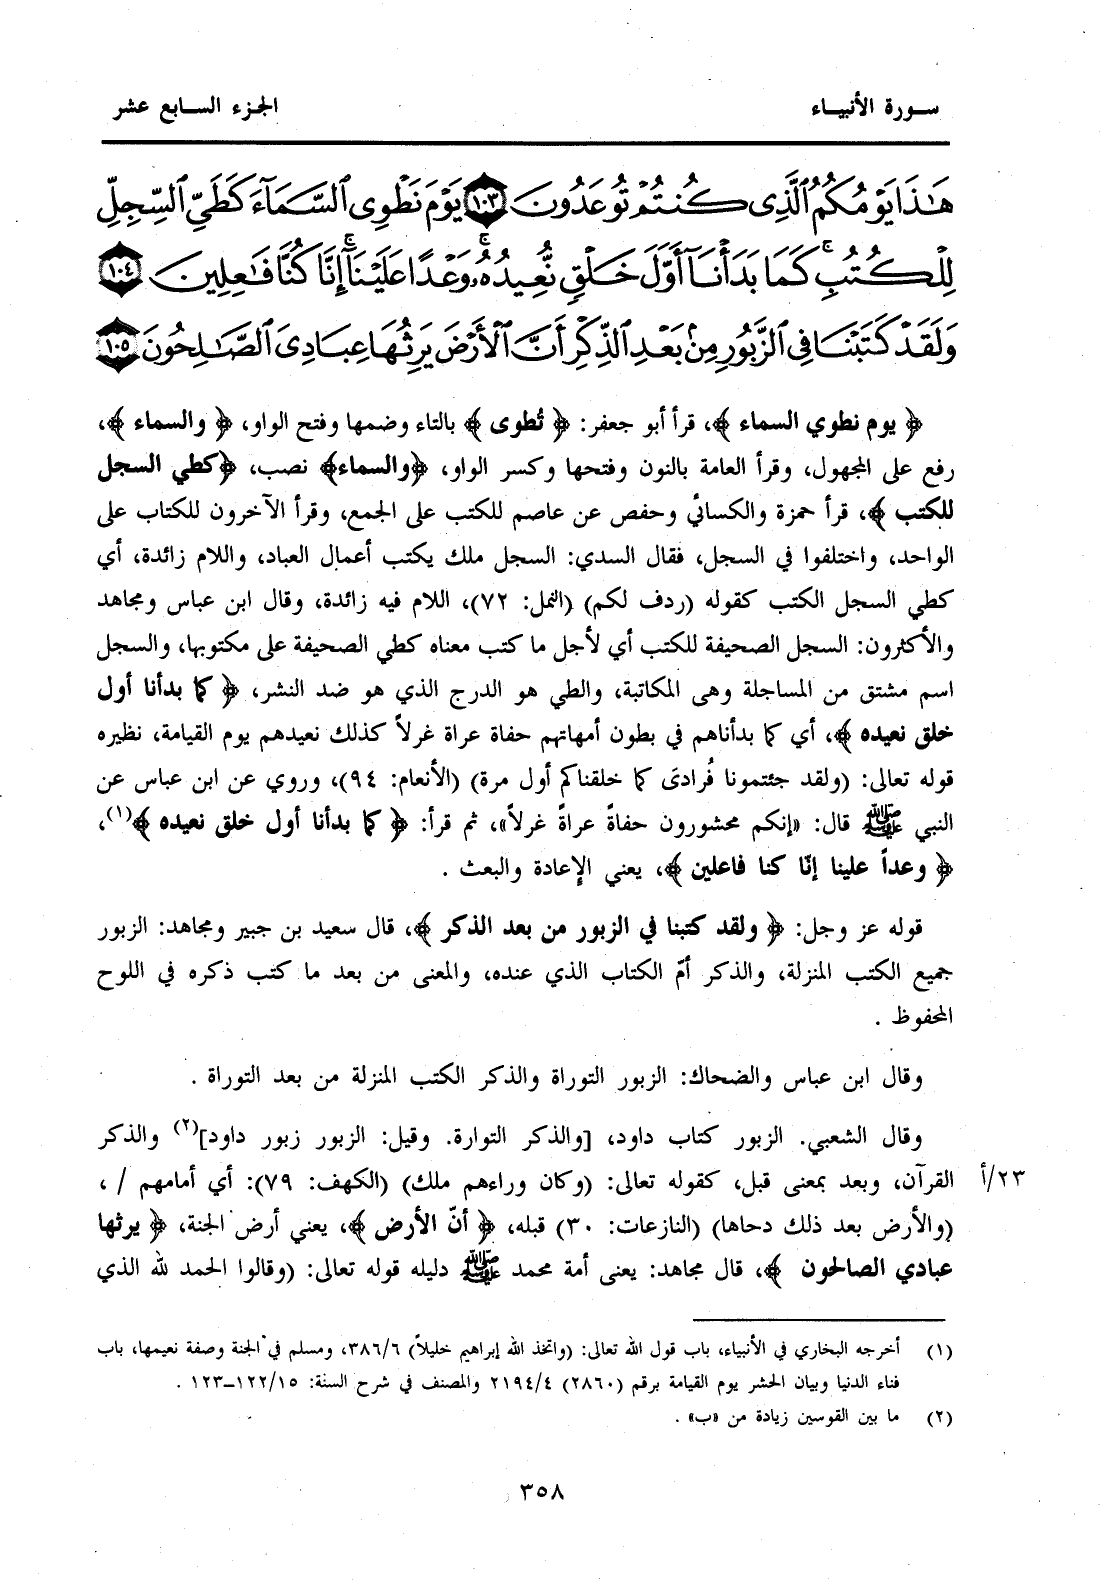 سورة الأنبياء
الجزء السابع عشر
هَٰذَا يَوْمُكُمُ ٱلَّذِى كُنتُمْ تُوعَدُونَ ١٠٣ يَوْمَ نَطْوِى ٱلسَّمَآءَ كَطَىِّ ٱلسِّجِلِّ
لِلْكُتُبِ ۚ كَمَا بَدَأْنَآ أَوَّلَ خَلْقٍ نُّعِيدُهُۥ ۚ وَعْدًا عَلَيْنَآ ۚ إِنَّا كُنَّا فَٰعِلِينَ ١٠٤
وَلَقَدْ كَتَبْنَا فِى ٱلزَّبُورِ مِنۢ بَعْدِ ٱلذِّكْرِ أَنَّ ٱلْأَرْضَ يَرِثُهَا عِبَادِىَ ٱلصَّٰلِحُونَ ١٠٥
﴿ يوم نطوي السماء ﴾، قرأ أبو جعفر: ﴿ تُطوى ﴾ بالتاء وضمها وفتح الواو، ﴿ والسماء ﴾،
رفع على المجهول، وقرأ العامة بالنون وفتحها وكسر الواو، ﴿والسماء﴾ نصب، ﴿كطي السجل
للكتب ﴾، قرأ حمزة والكسائي وحفص عن عاصم للكتب على الجمع، وقرأ الآخرون للكتاب على
الواحد، واختلفوا في السجل، فقال السدي: السجل ملك يكتب أعمال العباد، واللام زائدة، أي
كطي السجل الكتب كقوله (ردف لكم) (النمل: ٧٢)، اللام فيه زائدة، وقال ابن عباس ومجاهد
والأكثرون: السجل الصحيفة للكتب أي لأجل ما كتب معناه كطي الصحيفة على مكتوبها، والسجل
اسم مشتق من المساجلة وهي المكاتبة، والطي هو الدرج الذي هو ضد النشر، ﴿ كما بدأنا أول
خلق نعيده ﴾، أي كما بدأناهم في بطون أمهاتهم حفاة عراة غرلاً كذلك نعيدهم يوم القيامة، نظيره
قوله تعالى: (ولقد جئتمونا فُرادىَ كما خلقناكم أول مرة) (الأنعام: ٩٤)، وروي عن ابن عباس عن
النبي ﷺ قال: «إنكم محشورون حفاةً عراةً غرلاً»، ثم قرأ: ﴿ كما بدأنا أول خلق نعيده ﴾(١)،
﴿ وعداً علينا إنّا كنا فاعلين ﴾، يعني الإعادة والبعث .
قوله عز وجل: ﴿ ولقد كتبنا في الزبور من بعد الذكر ﴾، قال سعيد بن جبير ومجاهد: الزبور
جميع الكتب المنزلة، والذكر أمّ الكتاب الذي عنده، والمعنى من بعد ما كتب ذكره في اللوح
المحفوظ .
وقال ابن عباس والضحاك: الزبور التوراة والذكر الكتب المنزلة من بعد التوراة .
وقال الشعبي. الزبور كتاب داود، [والذكر التوارة. وقيل: الزبور زبور داود](٢) والذكر
القرآن، وبعد بمعنى قبل، كقوله تعالى: (وكان وراءهم ملك) (الكهف: ٧٩): أي أمامهم / ،
٢٣/أ
(والأرض بعد ذلك دحاها) (النازعات: ٣٠) قبله، ﴿ أنّ الأرض ﴾، يعني أرض الجنة، ﴿ يرثها
عبادي الصالحون ﴾، قال مجاهد: يعني أمة محمد ﷺ دليله قوله تعالى: (وقالوا الحمد لله الذي
(١) أخرجه البخاري في الأنبياء، باب قول الله تعالى: (واتخذ الله إبراهيم خليلاً) ٣٨٦/٦، ومسلم في الجنة وصفة نعيمها، باب
فناء الدنيا وبيان الحشر يوم القيامة برقم (٢٨٦٠) ٢١٩٤/٤ والمصنف في شرح السنة: ١٢٢/١٥–١٢٣ .
(٢) ما بين القوسين زيادة من «ب» .
٣٥٨